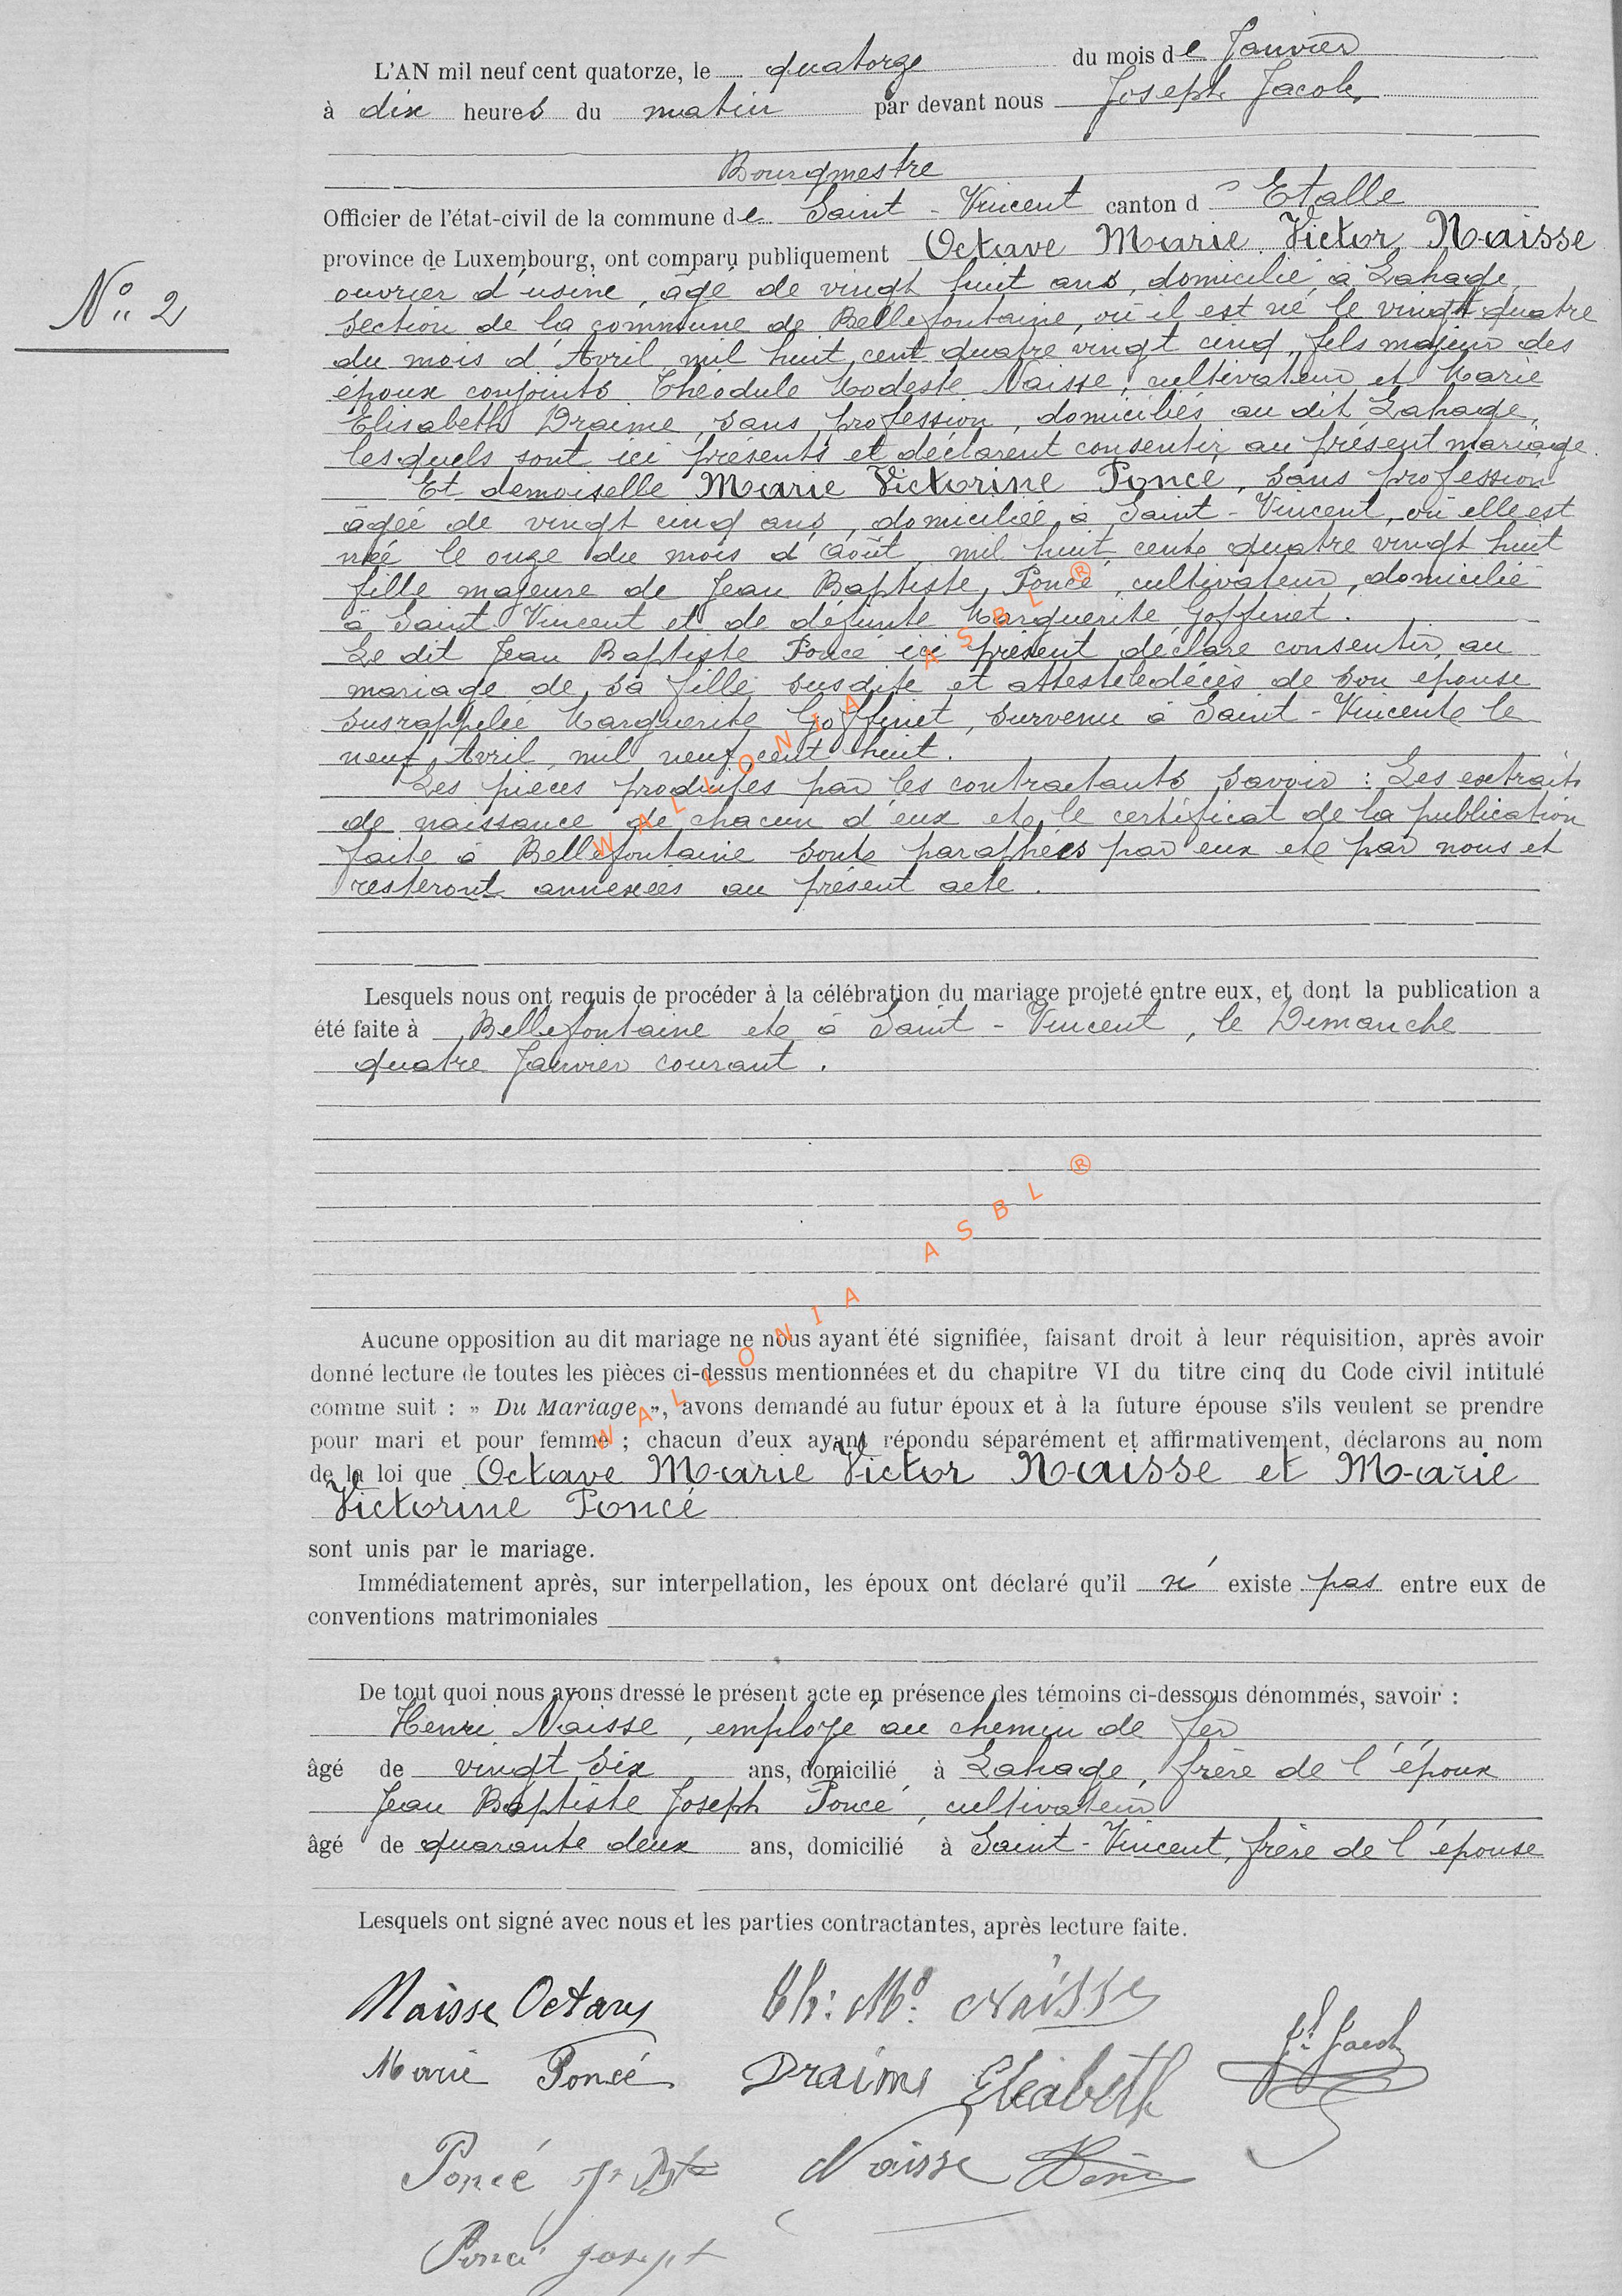 L'AN mil neuf cent quatorze, le quatorze du mois de Janvier
à dix heures du matin par devant nous Joseph Jacob,
Bourgmestre
Officier de l'état-civil de la commune de Saint-Vincent canton d'Etalle
province de Luxembourg, ont comparu publiquement Octave Marie Victor Naisse
N° 2
ouvrier d'usine, âgé de vingt huit ans, domicilié à Lahage,
section de la commune de Bellefontaine, où il est né le vingt quatre
du mois d'Avril mil huit cent quatre vingt cinq, fils majeur des
époux conjoints Théodule Modeste Naisse, cultivateur et Marie
Elisabeth Draime, sans profession, domiciliés au dit Lahage,
lesquels sont ici présents et déclarent consentir au présent mariage.
Et demoiselle Marie Victorine Poncé, sans profession
âgée de vingt cinq ans, domiciliée à Saint-Vincent, où elle est
née le onze du mois d'Août, mil huit cent quatre vingt huit
fille majeure de Jean Baptiste Poncé, cultivateur, domicilié
à Saint Vincent et de défunte Marguerite Goffinet.
Le dit Jean Baptiste Poncé ici présent déclare consentir au
mariage de sa fille susdite et atteste le décès de son épouse
susrappelée Marguerite Goffinet, survenu à Saint-Vincent le
neuf Avril mil neuf cent huit.
Les pièces produites par les contractants savoir : Les extraits
de naissance de chacun d'eux et le certificat de la publication
faite à Bellefontaine sont paraphées par eux et par nous et
resteront annexées au présent acte.
Lesquels nous ont requis de procéder à la célébration du mariage projeté entre eux, et dont la publication a
été faite à Bellefontaine et à Saint-Vincent, le Dimanche
quatre Janvier courant.
WALLONIA ASBL ®
WALLONIA ASBL ®
Aucune opposition au dit mariage ne nous ayant été signifiée, faisant droit à leur réquisition, après avoir
donné lecture de toutes les pièces ci-dessus mentionnées et du chapitre VI du titre cinq du Code civil intitulé
comme suit : » Du Mariage », avons demandé au futur époux et à la future épouse s'ils veulent se prendre
pour mari et pour femme ; chacun d'eux ayant répondu séparément et affirmativement, déclarons au nom
de la loi que Octave Marie Victor Naisse et Marie
Victorine Poncé
sont unis par le mariage.
Immédiatement après, sur interpellation, les époux ont déclaré qu'il n' existe pas entre eux de
conventions matrimoniales
De tout quoi nous avons dressé le présent acte en présence des témoins ci-dessous dénommés, savoir :
Henri Naisse, employé au chemin de fer
âgé de vingt six ans, domicilié à Lahage, frère de l'époux
Jean Baptiste Joseph Poncé, cultivateur
âgé de quarante deux ans, domicilié à Saint-Vincent, frère de l'épouse
Lesquels ont signé avec nous et les parties contractantes, après lecture faite.
Naisse Octave Th: Mᵈ. Naisse
Jʰ Jacob
Marie Poncé Draime Elisabeth
Poncé J. Bte Naisse Henri
Poncé Joseph